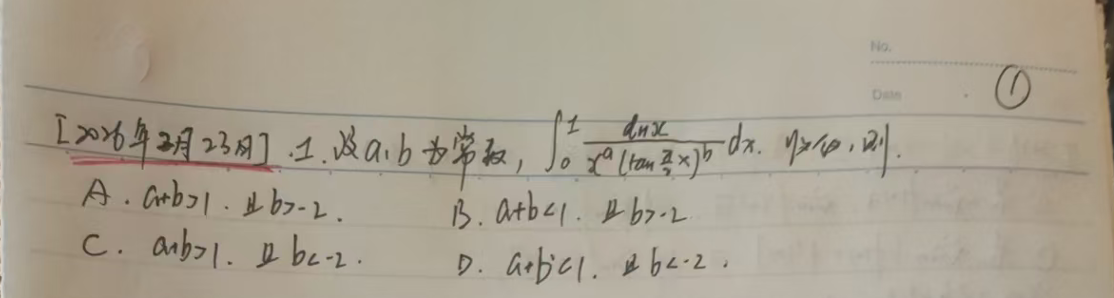 No.
Date
①
[2026年2月23日].1.设a,b为常数, ∫₀¹ lnx / (x^a (tan π/2 x)^b) dx. 收敛,则.
A. a+b>1. 且 b>-2.
B. a+b<1. 且 b>-2
C. a+b>1. 且 b<-2.
D. a+b<1. 且 b<-2.